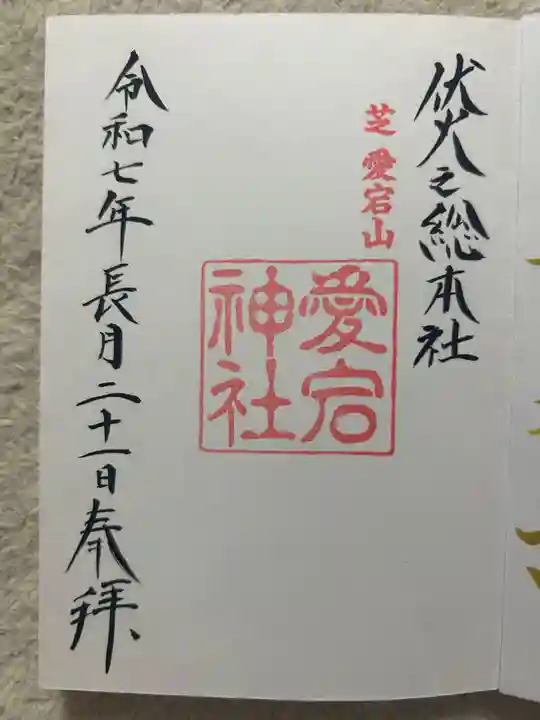 伏火之総本社
芝 愛宕山
愛宕
神社
令和七年長月二十一日奉拝